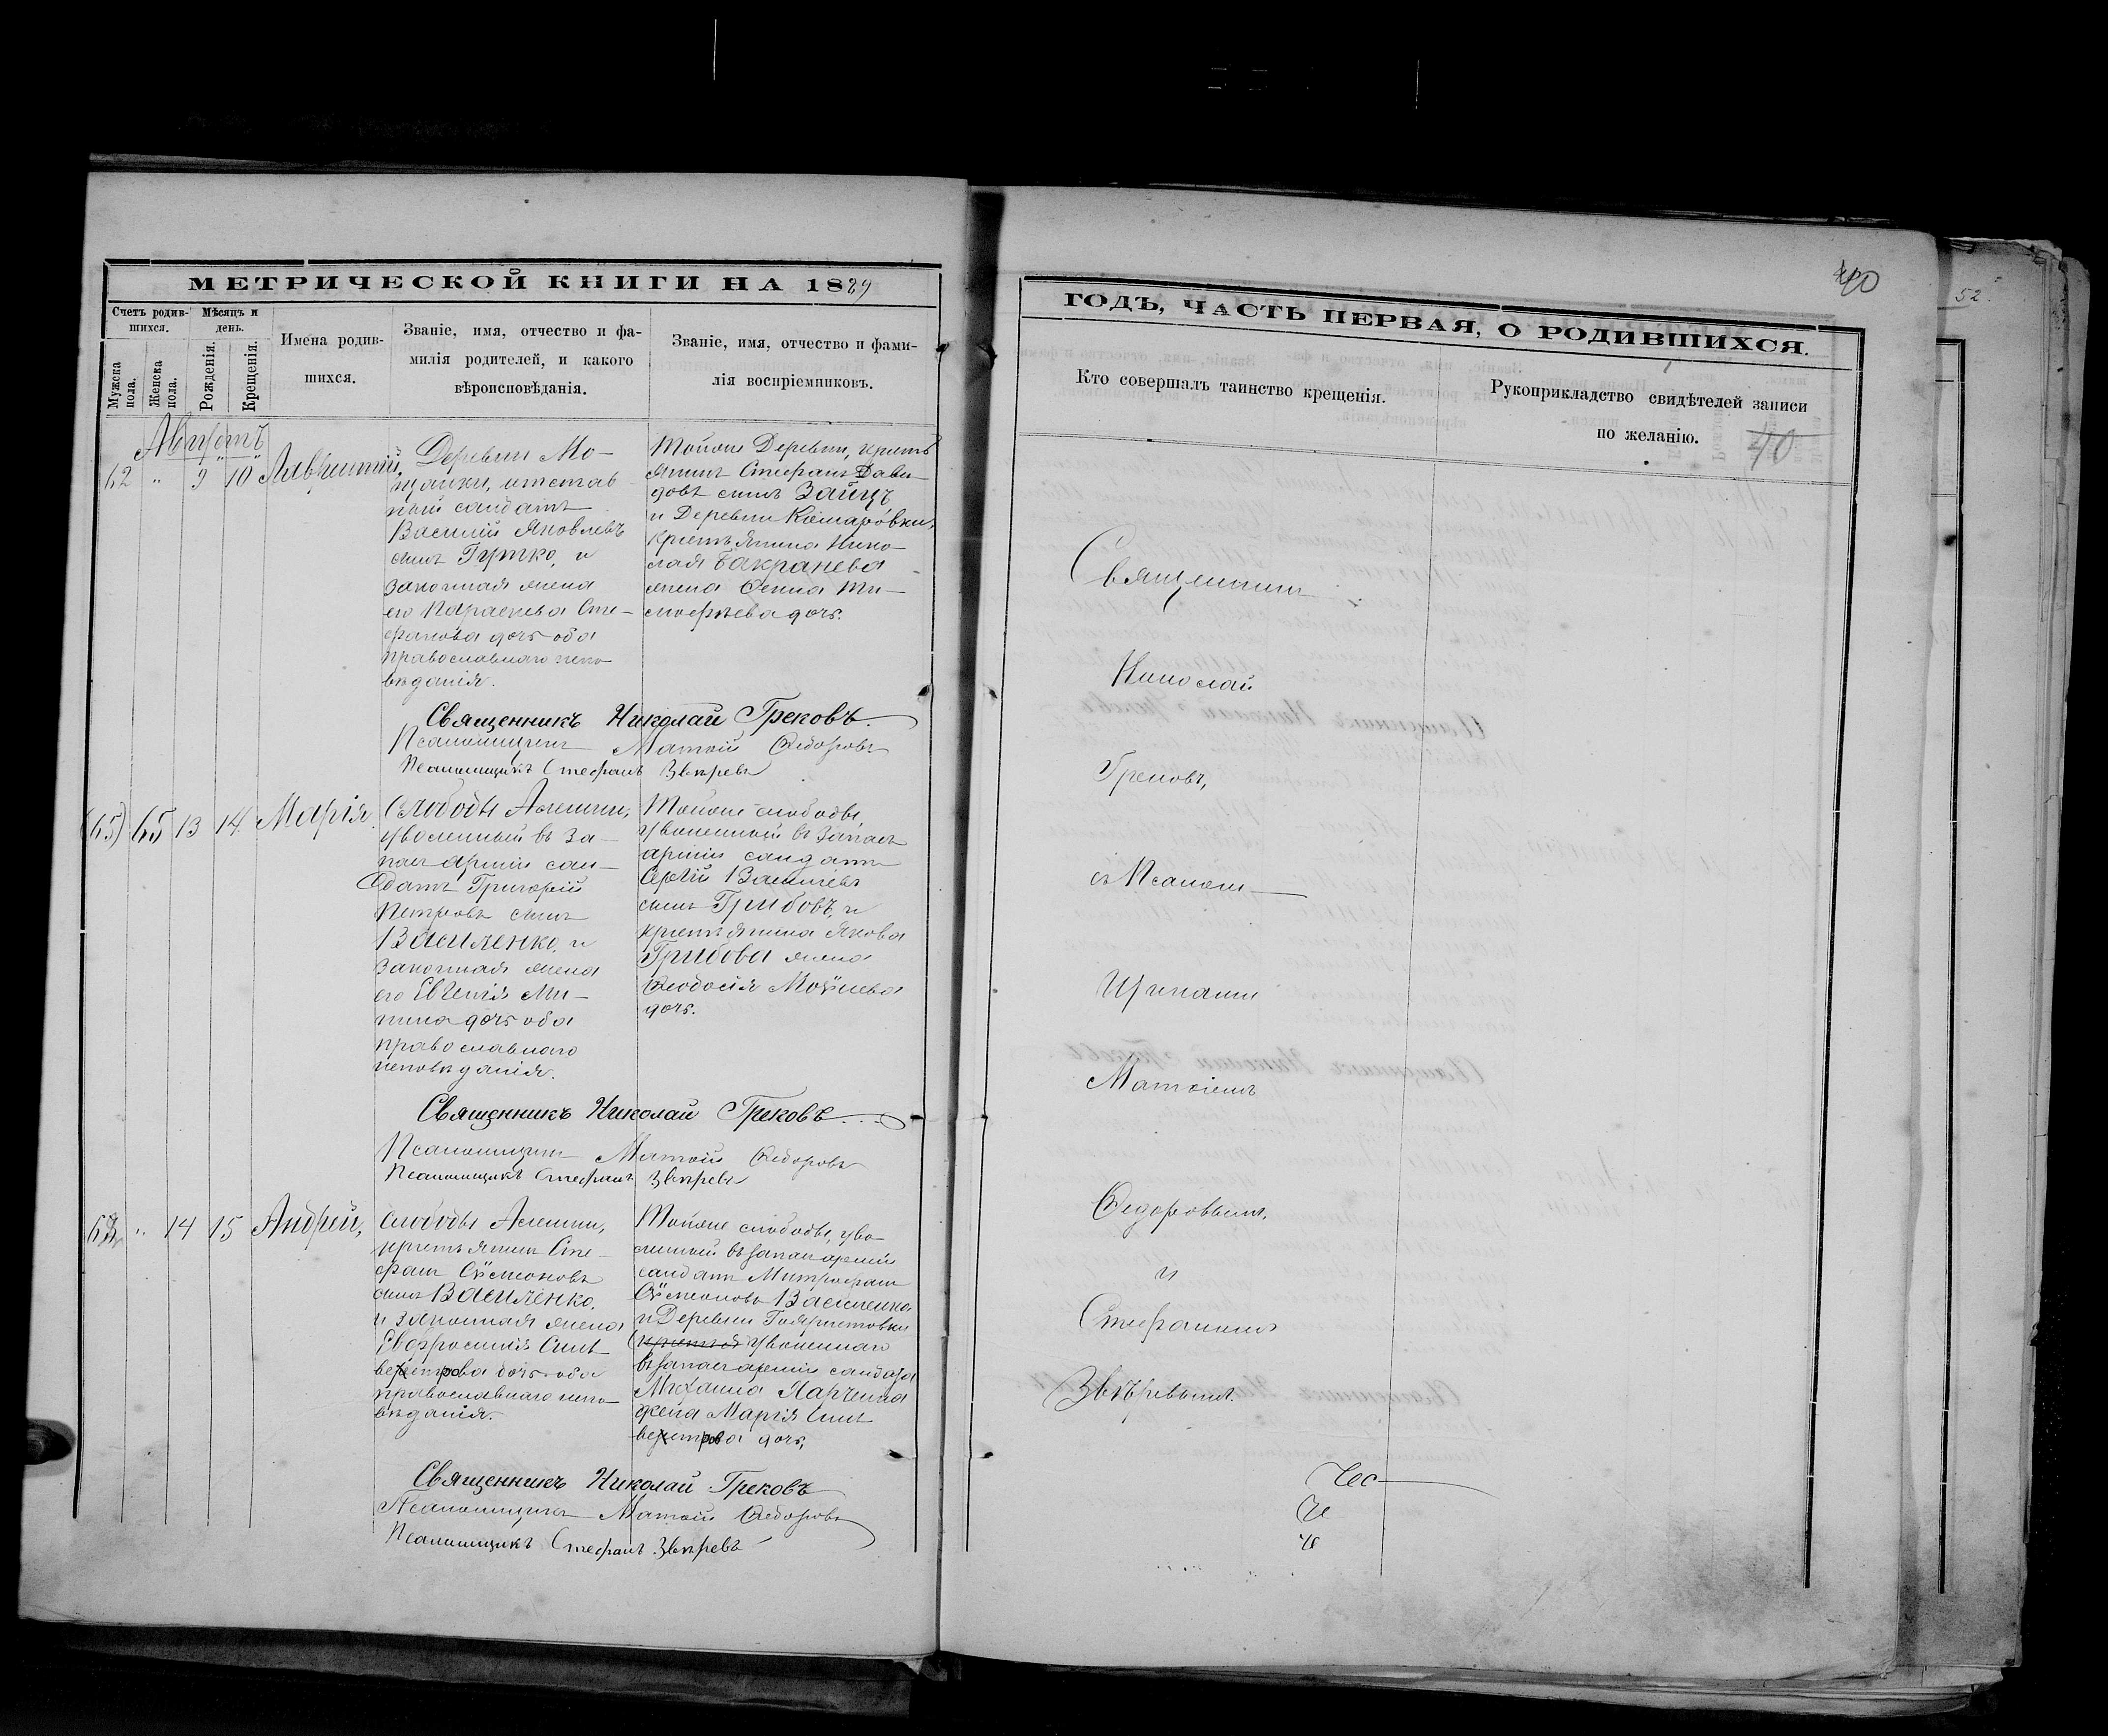 МЕТРИЧЕСКОЙ КНИГИ НА 1889
Счетъ родив-
шихся.
Мѣсяцъ и
день.
Мужска
пола.
Женска
пола.
Рожденія.
Крещенія.
Имена родив-
шихся.
Званіе, имя, отчество и фа-
милія родителей, и какого
вѣроисповѣданія.
Званіе, имя, отчество и фами-
лія воспріемниковъ.
Августъ
62 " 9 10 Лаврентій,
Деревни Мо-
отстав
ный солдатъ
Василій Яковлевъ
сынъ Гутко, и
законная жена
его Параскева Сте-
фанова дочь оба
православнаго испо-
вѣданія.
Тойже Деревни, кресть
янинъ Стефанъ Дави
довъ сынъ Заицъ
и Деревни Комаровки,
крестьянина Нико-
лая Бакранева
жена Ѳекла Ти-
моѳѣева дочь.
Священникъ Николай Грековъ
Псаломщикъ Матѳій Ѳедоровъ
Псаломщикъ Стефанъ Звѣревъ
(65) 65 13 14 Марія.
Слободы Алешни,
уволенный въ за-
пасъ арміи сол-
датъ Григорій
Петровъ сынъ
Василенко, и
законная жена
его Евгенія Ми-
нина дочь оба
православнаго
исповѣданія.
Тойже слободы
уволенной въ запасъ
арміи солдатъ
Сергій Васильевъ
сынъ Грибовъ, и
крестьянина Якова
Грибова жена
Ѳеодосія Моѵсеева
дочь.
Священникъ Николай Грековъ
Псаломщикъ Матѳій Ѳедоровъ
Псаломщикъ Стефанъ Звѣревъ
" 14 15 Андрей,
Слободы Алешни,
крестьянинъ Сте-
фанъ Сѵмеоновъ
сынъ Василенко,
и законная жена
Евфросинія Сили
верстрова дочь оба
православнаго испо-
вѣданія.
Тойже слободы, уво-
ленный въ запасъ арміи
солдатъ Митрофанъ
Сѵмеоновъ Василенко
и Деревни
уволеннаго
въ запасъ арміи солдата
Михаила Харченка
жена Марія Сили
верстрова дочь,
Священникъ Николай Грековъ
Псаломщикъ Матѳій Ѳедоровъ
Псаломщикъ Стефанъ Звѣревъ
40
52
ГОДЪ, ЧАСТЬ ПЕРВАЯ, О РОДИВШИХСЯ.
Кто совершалъ таинство крещенія.
Рукоприкладство свидѣтелей записи
по желанію.
40
Священникъ
Николай
Грековъ,
съ Псалом-
щиками
Матѳіемъ
Ѳедоровымъ,
и
Стефаномъ
Звѣревымъ.